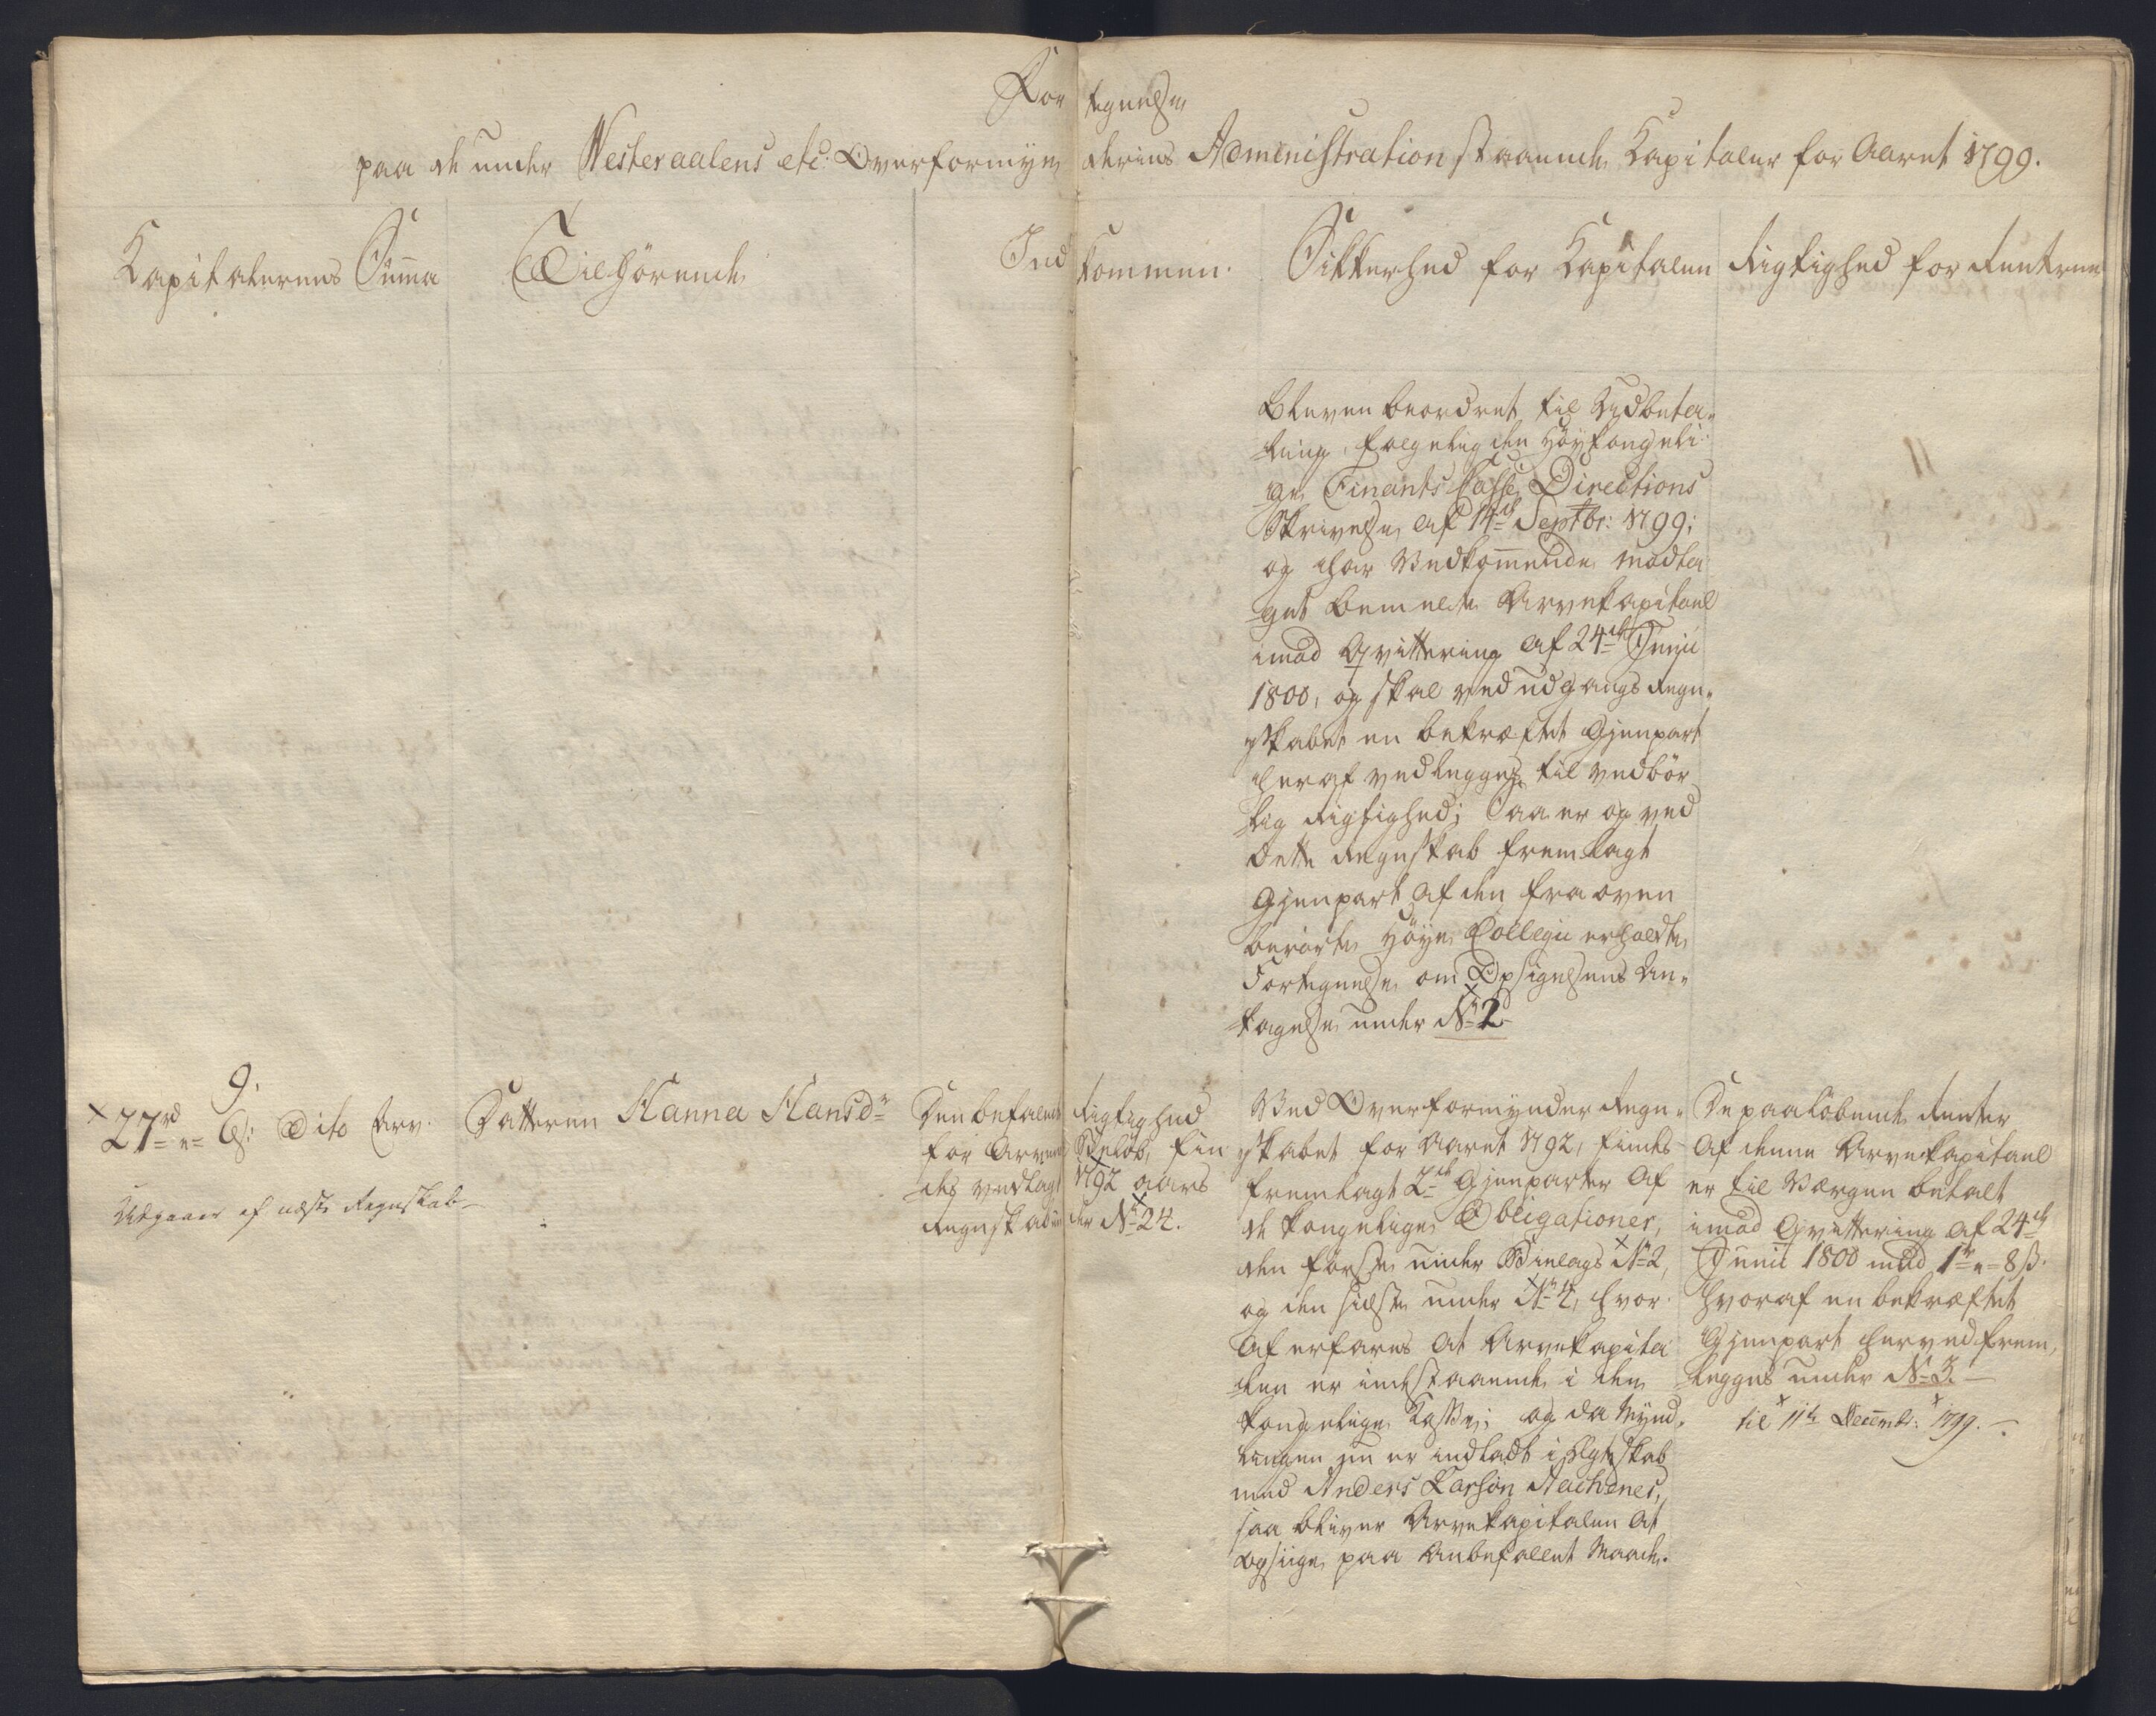 Fortegnelse
paa de under Westeraalens etc: Overformynderies Administration staaende Kapitaler for Aaret 1799.
Kapitalernes Summa
Tilhörende
Indkommen.
Sikkerhed for Kapitalen
Rigtighed for Renterne
bleven beordret til Udbeta-
ling, følgelig den Høykongeli-
ge Finants Casse Directions
Skrivelse af 14de Septbr: 1799;
og har Vedkommende modta-
get bemelte Arvekapitael
imod Qvittering af 24de Junii
1800, og skal ved udgangs Regn-
skabet en bekræftet Gjenpart
heraf vedlegges til vedbör-
lig Rigtighed; Saa er og ved
dette Regnskab fremlagt
Gjenpart af den fra oven
berörte Höye Collegii erholdte
Fortegnelse om Opsigelsens An-
tagelse under No 2
9.
× 27rd " ß: Dito Arv.
Udgaaer af næste Regnskab
Datteren Hanna Hansdr
Den befalende Rigtighed
for Arvens Beløb, fin-
des vedlagt 1792 aars
Regnskab under No 24.
Ved Overformynder Regn-
skabet for Aaret 1792, findes
fremlagt 2de Gjenparter af
de kongelige Obligationer,
den første under Bilags No 2,
og den sidste under No 4, hvor-
af erfares at Arvekapita-
len er indestaaende i den
kongelige Kasse; og da Mynd-
lingen nu er indladt i Ægteskab
med Anders Larsön
saa bliver Arvekapitalen at
opsiige paa anbefallet Maade.
De paalöbende Renter
af denne Arvekapitael
er til Værgen betalt
imod Qvittering af 24de
Junii 1800 med 1r " 8 ß.
hvoraf en bekræftet
Gjenpart herved frem-
legges under No 3.
til 11te Decembr: 1799.